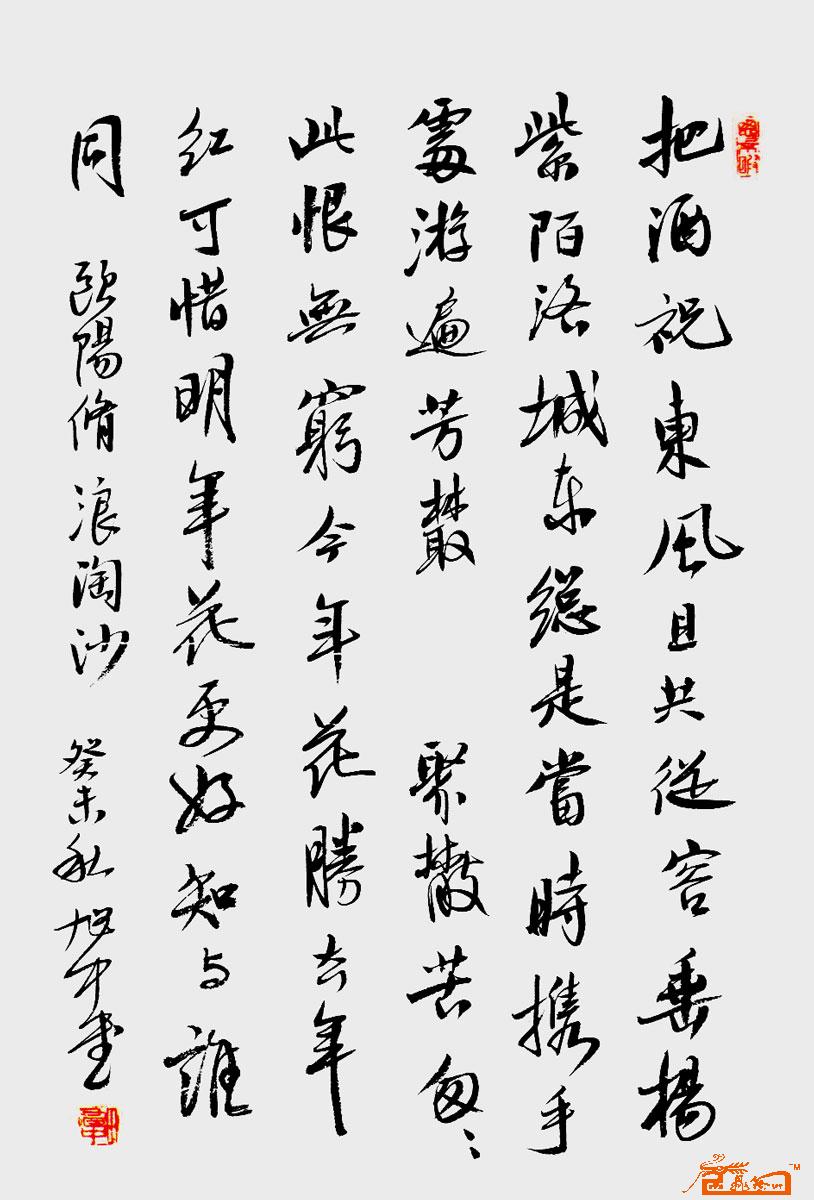 把酒祝東風且共從容垂楊
紫陌洛城东總是當時携手
處游遍芳叢 聚散苦匆〻
此恨無窮今年花勝去年
红可惜明年花更好知与誰
同 歐陽脩浪淘沙 癸未秋旭中书